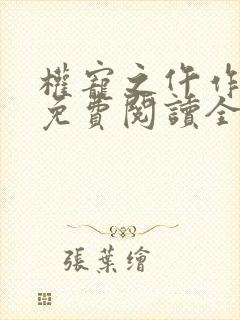 權寵之仵作
免費閱讀全
張葉繪